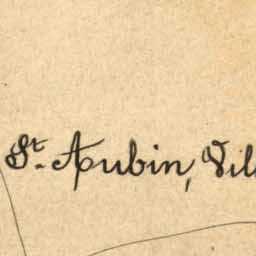 St. Aubin, Vil